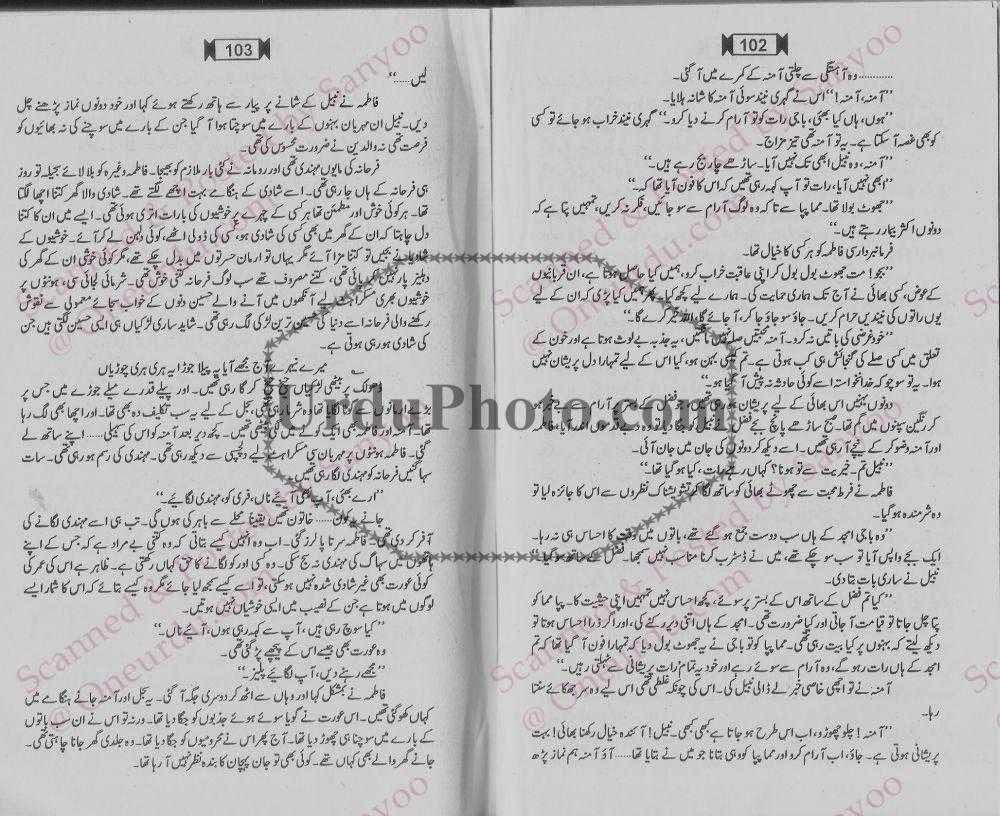 102
............وہ آہستگی سے چلتی آمنہ کے کمرے میں آ گئی۔
’’آمنہ، آمنہ!‘‘ اس نے گہری نیند سوئی آمنہ کا شانہ ہلایا۔
’’ہوں، ہاں کیا بھئی، باجی رات کو تو آرام کرنے دیا کرو۔‘‘ گہری نیند خراب ہو جائے تو کسی
کو بھی غصہ آ سکتا ہے۔ یہ تو آمنہ تھی تیز مزاج۔
’’آمنہ، وہ نبیل ابھی تک نہیں آیا۔ ساڑھے چار بج رہے ہیں۔‘‘
’’ابھی نہیں آیا، رات تو آپ کہہ رہی تھیں کہ اس کا فون آیا تھا کہ۔‘‘
’’جھوٹ بولا تھا۔ مما پپا سے تا کہ وہ لوگ آرام سے سو جائیں، فکر نہ کریں، تمہیں پتا ہے کہ
دونوں اکثر بیمار رہتے ہیں۔‘‘
فرمانبرداری فاطمہ کو ہر کسی کا خیال تھا۔
’’بجو! مت جھوٹ بول بول کر اپنی عاقبت خراب کرو، ہمیں کیا حاصل ہوتا ہے، ان قربانیوں
کے عوض، کسی بھائی نے آج تک ہماری حمایت کی۔ ہمارے لیے کچھ کیا۔ پھر ہمیں کیا پڑی کہ ان کے لیے
یوں راتوں کی نیندیں حرام کریں۔ جاؤ سو جاؤ جا کر، آ جائے گا، اللہ خیر کرے گا۔‘‘
’’خود غرضی کی باتیں نہ کرو۔ آمنہ محبتیں صلے نہیں مانگتیں، یہ جذبہ بے لوث ہوتا ہے اور خون کے
تعلق میں کسی صلے کی گنجائش ہی کب ہوتی ہے۔ تم کیسی بہن ہو، کیا اس کے لیے تمہارا دل پریشان نہیں
ہوا۔ یہ تو سوچو کہ خدانخواستہ اسے کوئی حادثہ نہ پیش آ گیا ہو۔‘‘
دونوں بہنیں اس بھائی کے لیے پریشان ہو رہی تھیں، جو فضل کے بستر میں آرام سے بے خبر ہو
کر رنگین سپنوں میں گم تھا۔ صبح ساڑھے پانچ بجے فضل نبیل
اور آمنہ وضو کر کے نیچے آ رہی تھیں۔ اسے دیکھ کر دونوں کی جان میں جان آئی۔
’’نبیل تم۔ خیریت سے تو ہونا؟ کہاں رہے رات، کیا ہو گیا تھا۔‘‘
فاطمہ نے فرطِ محبت سے چھوٹے بھائی کو ساتھ لگا کر تشویشناک نظروں سے اس کا جائزہ لیا تو
وہ شرمندہ ہو گیا۔
’’وہ باجی امجد کے ہاں سب دوست جمع ہو گئے تھے، باتوں میں وقت کا احساس ہی نہ رہا۔
ایک بجے واپس آیا تو سب سو چکے تھے، میں نے ڈسٹرب کرنا مناسب نہیں سمجھا۔ فضل کے ساتھ سو گیا۔‘‘
نبیل نے ساری بات بتا دی۔
’’کیا تم فضل کے ساتھ اس کے بستر پر سوئے، کچھ احساس نہیں تمہیں اپنی حیثیت کا۔ پپا مما کو
پتا چل جاتا تو قیامت آ جاتی اور کیا ضرورت تھی۔ امجد کے ہاں اتنی دیر رکنے کی، اور اگر ذرا احساس ہوتا تو
دیکھ لیتے کہ بہنوں پر کیا بیت رہی تھی۔ مما پپا کو تو باجی نے یہ جھوٹ بول دیا کہ تمہارا فون آ گیا تھا کہ تم
امجد کے ہاں رات رہو گے، وہ آرام سے سوئے رہے اور خود یہ تمام رات پریشانی سے ٹہلتی رہیں۔‘‘
آمنہ نے تو اچھی خاصی خبر لے ڈالی نبیل کی۔ اس کی چونکہ غلطی تھی اس لیے وہ سر جھکائے سنتا
رہا۔
’’آمنہ! چلو چھوڑو، اب اس طرح ہو جاتا ہے کبھی کبھی۔ نبیل! آئندہ خیال رکھنا بھائی! بہت
پریشانی ہوتی ہے۔ جاؤ، اب آرام کرو اور مما پپا کو وہی بتانا جو میں نے بتایا تھا۔...... آؤ آمنہ ہم نماز پڑھ
103
لیں......‘‘
فاطمہ نے نبیل کے شانے پر پیار سے ہاتھ رکھتے ہوئے کہا اور خود دونوں نماز پڑھنے چل
دیں۔ نبیل ان مہربان بہنوں کے بارے میں سوچتا ہوا آ گیا جن کے بارے میں سوچنے کی نہ بھائیوں کو
فرصت تھی نہ والدین نے ضرورت محسوس کی تھی۔
فرحانہ کی مایوں مہندی تھی اور رومانہ نے کئی بار ملازم کو بھیجا۔ فاطمہ وغیرہ کو بلا لائے جمیلہ تو روز
ہی فرحانہ کے ہاں جا رہی تھی۔ اسے شادی کے ہنگامے بہت اچھے لگتے تھے۔ شادی والا گھر کتنا اچھا لگتا
تھا۔ ہر کوئی خوش اور مطمئن تھا ہر کسی کے چہرے پر خوشیوں کی بارات اتری ہوئی تھی۔ ایسے میں ان کا کتنا
دل چاہتا کہ ان کے گھر میں بھی کسی کی شادی ہو، کسی کی ڈولی اٹھے، کوئی دلہن لے کر آئے۔ خوشیوں کے
شادیانے بجیں تو کتنا مزا آئے مگر یہاں تو ارمان حسرتوں میں بدل چکے تھے، مگر کوئی خوشی ان کے گھر کی
دہلیز پار نہیں کر پائی تھی، کتنے مصروف تھے سب لوگ فرحانہ کتنی خوش تھی۔ شرمائی لجائی سی، ہونٹوں پر
خوشیوں بھری مسکراہٹ لیے آنکھوں میں آنے والے حسین دنوں کے خواب سجائے معمولی سے نقوش
رکھنے والی فرحانہ اسے دنیا کی حسین ترین لڑکی لگ رہی تھی۔ شاید ساری لڑکیاں ہی ایسی حسین لگتی ہیں جن
کی شادی ہو رہی ہوتی ہے۔
میرے نیہر سے آج مجھے آیا یہ پیلا جوڑا یہ ہری ہری چوڑیاں
ڈھولک پر بیٹھی لڑکیاں گا رہی تھیں۔ اور پیلے قدرے میلے جوڑے میں جس پر
بڑے ارمانوں سے گوٹا لگایا تھا وہ شرما رہی تھی، سجل کے لیے یہ سب تکلیف دہ بھی تھا۔ اور اچھا بھی لگ رہا
تھا۔ آمنہ اور فاطمہ بھی ایک کونے میں بیٹھی تھیں۔ کچھ دیر بعد آمنہ کو اس کی سہیلی...... اپنے ساتھ لے
گئی۔ فاطمہ ہونٹوں پر مہربان سی مسکراہٹ لیے دلچسپی سے دیکھ رہی تھی۔ مہندی کی رسم ہو رہی تھی۔ سات
سہاگنیں فرحانہ کو مہندی لگا رہی تھیں۔
’’ارے بھئی، آپ بھی آئیے ناں، فری کو، مہندی لگائیے۔‘‘
جانے وہ کون...... خاتون تھیں یقیناً محلے سے باہر کی ہوں گی۔ تب ہی اسے مہندی لگانے کی
آفر کر دی تھی۔ فاطمہ سرتاپا لرز گئی۔ اب وہ انہیں کیسے بتاتی کہ وہ کتنی بے مراد ہے کہ جس کے اپنے
ہاتھوں میں سہاگ کی مہندی نہ سج سکی۔ وہ کسی اور کو لگانے کا حق کہاں رکھتی ہے۔ ظاہر ہے اس کی عمر کی
کوئی عورت بھی غیر شادی شدہ نہیں ہو سکتی، تو اسے کیسے سمجھ لیا جائے مگر وہ کیسے بتائے کہ اس کا شمار ایسے
لوگوں میں ہوتا ہے جن کے نصیب میں ایسی خوشیاں نہیں ہوتیں۔
’’کیا سوچ رہی ہیں، آپ سے کہہ رہی ہوں، آئیے ناں۔‘‘
وہ عورت بھی جیسے اس کے پیچھے پڑ گئی تھی۔
’’مجھے رہنے دیں، آپ لگائیے پلیز۔‘‘
فاطمہ نے بمشکل کہا اور وہاں سے اٹھ کر دوسری جگہ آ گئی۔ یہ سجل اور آمنہ جانے ہنگامے میں
کہاں کھو گئی تھیں۔ اس عورت نے گویا سوئے ہوئے جذبوں کو جگا دیا تھا۔ ورنہ تو اس نے ان سب باتوں
کے بارے میں سوچنا ہی چھوڑ دیا تھا۔ آج پھر اس نے محرومیوں کو جگا دیا تھا۔ وہ جلدی گھر جانا چاہتی تھی۔
جانے گھر والے بھی کہاں تھے۔ کوئی بھی تو جان پہچان کا بندہ نظر نہیں آ رہا تھا۔
UrduPhoto.com
Scanned & Posted by Sanyoo
@ Oneurdu.com